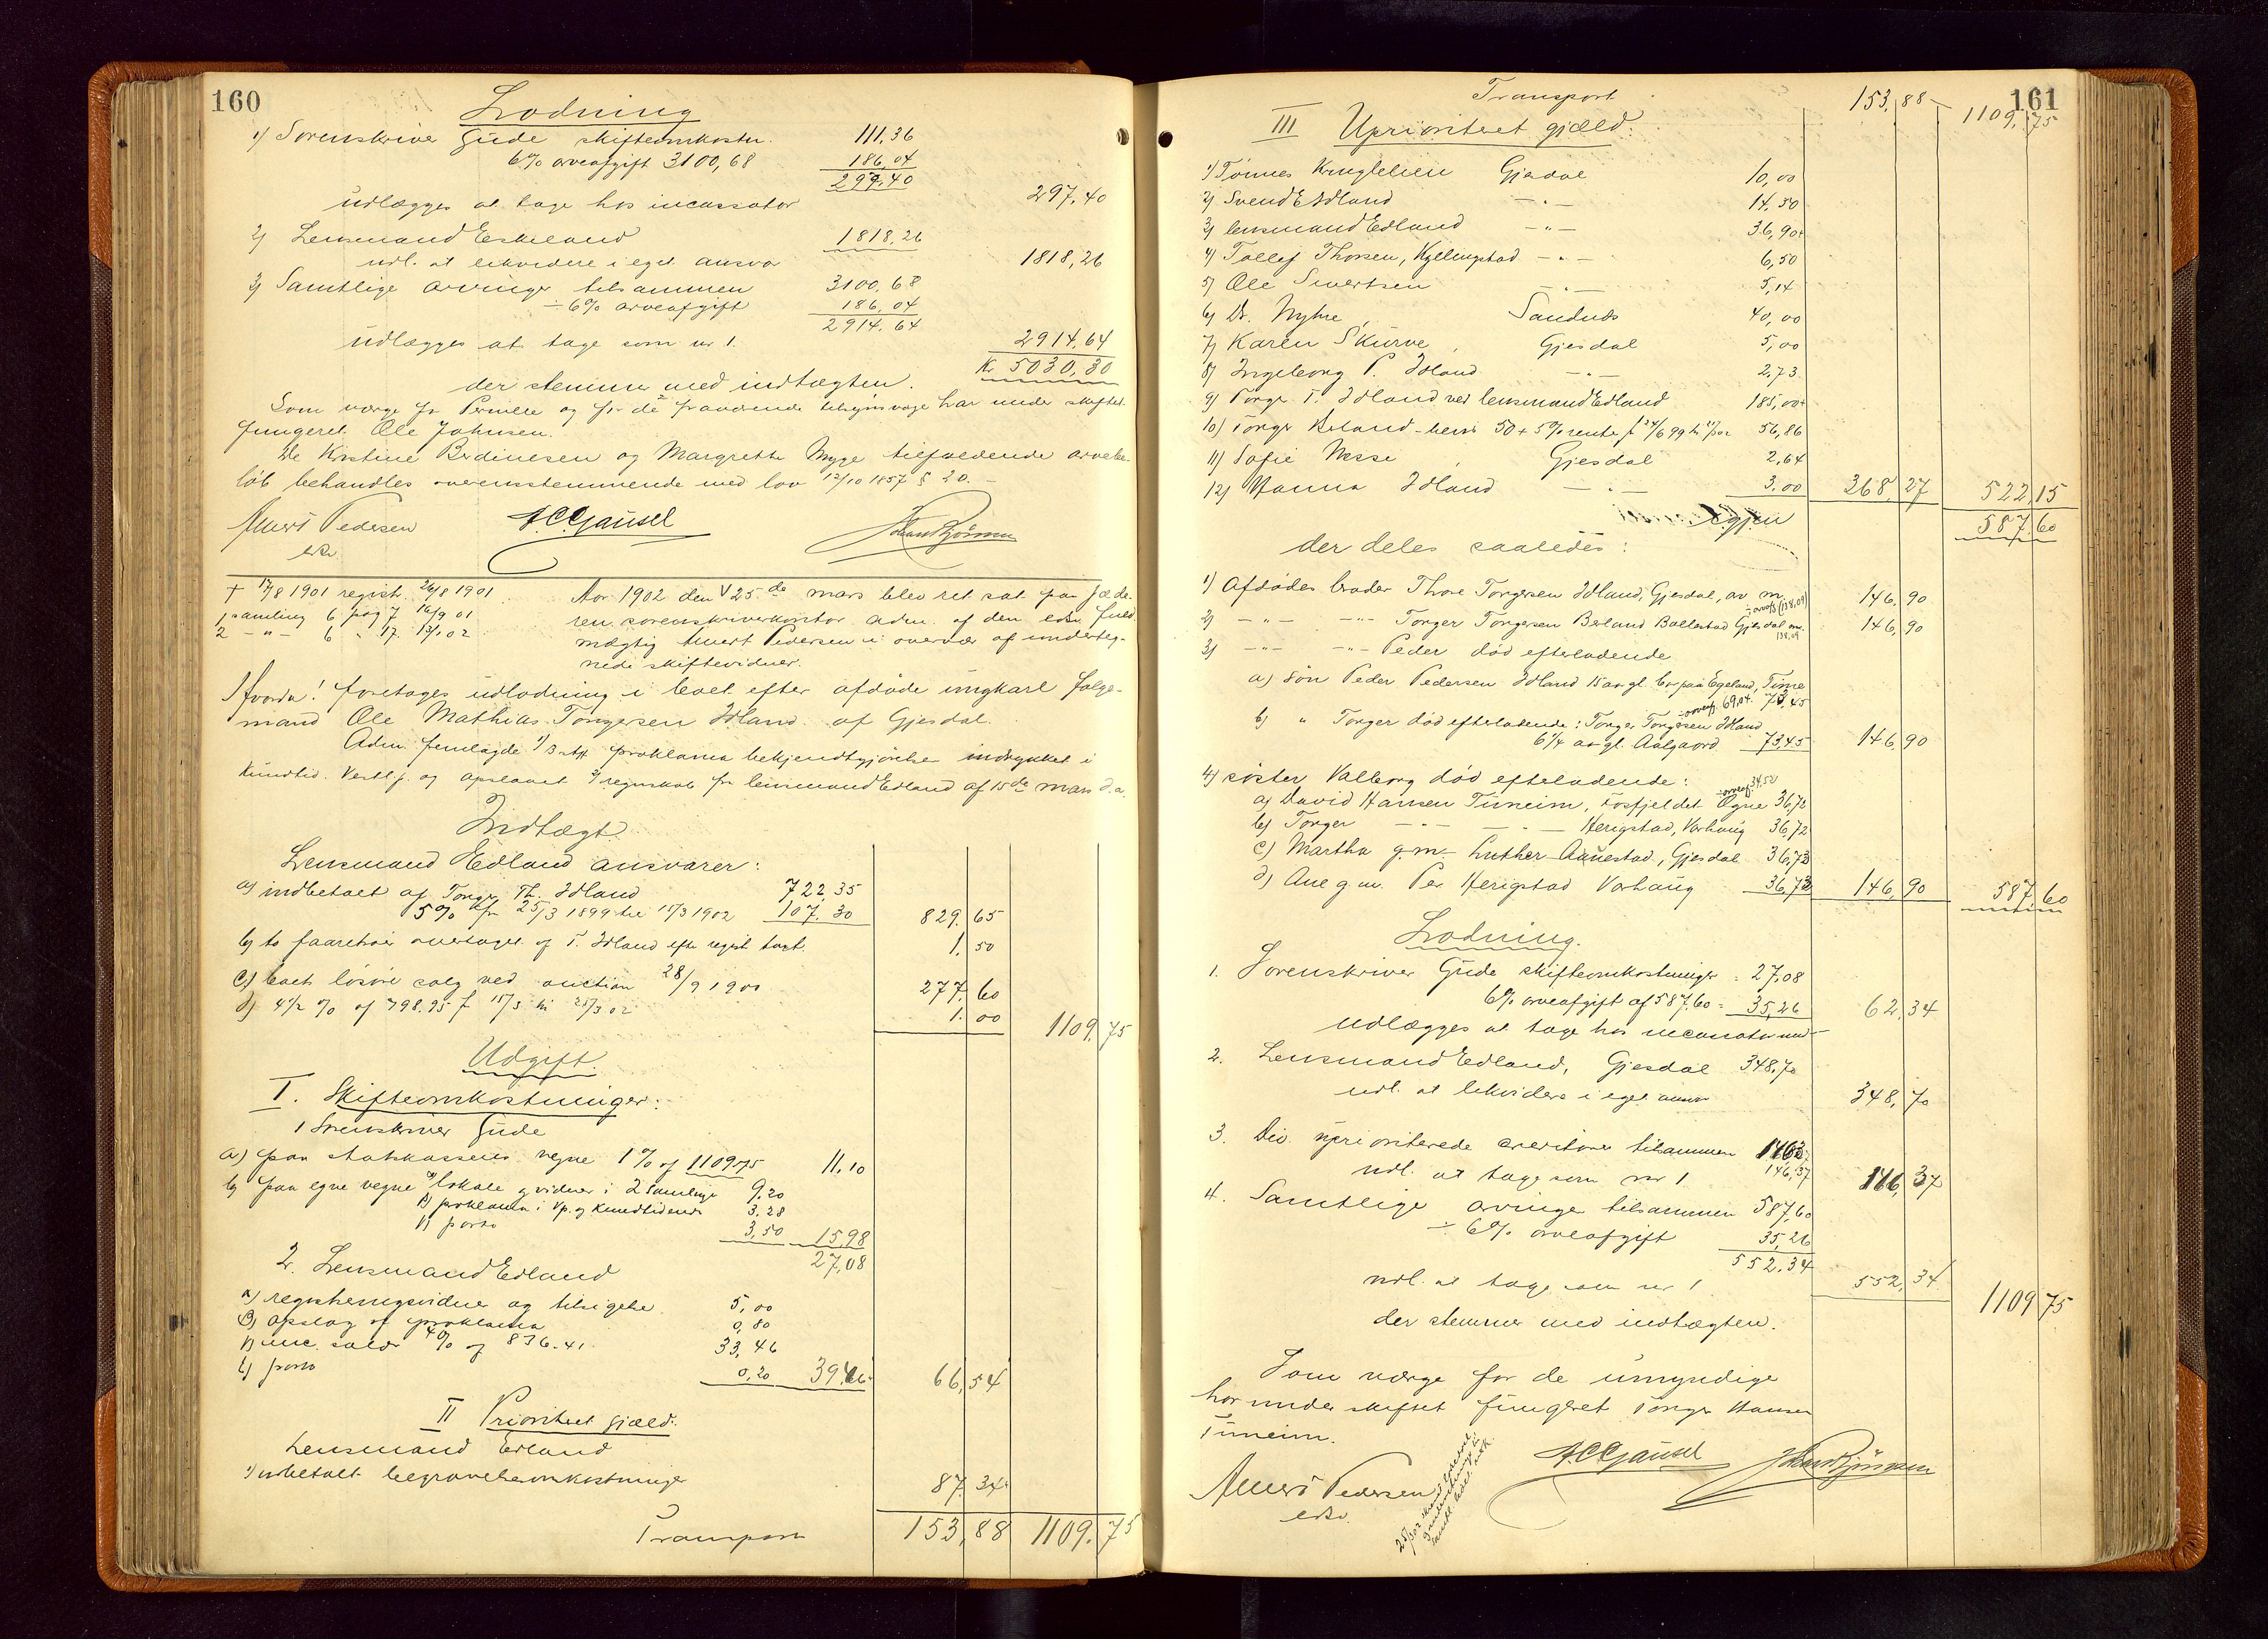 160
Lodning
1) Sorenskriver Gude skifteomkostn. 111,36
6% arveafgift 3100,68 186,04
297,40
udlægges at tage hos incassator 297,40
2) Lensmand Eskeland 1818,26
udl. at likvidere i eget ansvar 1818,26
3) Samtlige arvinger tilsammen 3100,68
÷ 6% arveafgift 186,04
2914,64
udlægges at tage som nr 1. 2914,64
Kr 5030,30
der stemmer med indtægten.
Som værge for Pernille og for de fraværende har under skiftet
fungeret Ole Johnsen.
De Kristine Berdinesen og Margrethe Myge tilfaldende arvebe-
løb behandles overensstemmende med lov 12/10 1857 § 20.
Anners Pedersen A C Gausel Johan Bjørnsen
edsv.
† 17/8 1901 regist. 26/8 1901
1 samling 6 pag 7 16/9 01
2 -"- 6 " 17 13/1 02
Aar 1902 den 25de mars blev ret sat paa Jæde-
ren sorenskriverkontor adm. af den edsv. fuld-
mægtig Anners Pedersen i overvær af underteg-
nede skiftevidner.
Hvorda! foretoges udlodning i boet efter afdøde ungkarl
mand Ole Mathias Torgersen Idland af Gjesdal.
Adm. fremlagde proklama bekjendtgjørelse indrykket i
Kundtid. Vestl.p. og opslaaet regnskab fra lensmand Edland af 15de mars d.a.
Indtægt
Lensmand Edland ansvarer:
a) indbetalt af Torger Th. Idland 722,35
5% fra 25/3 1899 til 15/3 1902 107.30 829.65
b) to faarehoer overtaget af T. Idland efter regist. taxt. 1.50
c) boets løsøre solg ved auction 28/9 1901 277.60
d) 4 1/2 % af 798.95 f 15/3 til 25/3 02 1.00 1109.75
Udgift.
I. Skifteomkostninger:
1 Sorenskriver Gude
a) paa statskassens vegne 1% af 1109.75 11,10
b) paa egne vegne lokale og vidner i 2 samlinger 9.20
β) proklama i Vp. og Kundtidende 3,28
γ) porto 3,50 15,98
27,08
2. Lensmand Edland
a) registreringsvidner og tilsigelse 5,00
β) opslag af proklama 0,80
γ) inc. salær 4% af 836.41 33,46
b) porto 0,20 39.46 66,54
II Prioritert gjæld:
Lensmand Edland
1) indbetalt begravelseomkostninger 87.34
Transport 153,88 1109.75
161
Transport 153,88 1109,75
III Uprioritert gjæld:
1) Tønnes Kruglelien Gjesdal 10,00
2) Svend E Idland -"- 14,50
3) lensmand Edland -"- 36,90
4) Tollef Thorsen, Kyllingstad -"- 6,50
5) Ole Sivertsen -"- 5,14
6) Dr. Nyhre, Sandnes 40,00
7) Karen Skurve, Gjesdal 5,00
8) Ingeborg P. Idland -"- 2,73
9) Torger T. Idland ved lensmand Edland 185,00
10) Torger Berland 50 + 5% rente f 24/6 99 til 56,86
11) Sofie Nesse, Gjesdal 2,64
12) Hanna Idland -"- 3.00 368,27 522,15
igjen 587,60
der deles saaledes:
1) Afdødes broder Thore Torgersen Idland, Gjesdal, av m. 146,90
÷ arvafg (138,09)
2) -"- -"- Torger Torgersen Berland Ballestad Gjesdal 146,90
138,09
3) -"- -"- Peder død efterladende
a) søn Peder Pedersen Idland 15 aar gl. bor paa Egeland, Time
÷ arveafg. 69,04. 73,45
b) " Torger død efterladende: Torger Torgersen Idland
6 1/4 aar gl. Aalgaard 73,45 146,90
4) søster Valborg død efterladende:
÷ arveaf. 34.52
a) David Hansen Tuneim, Fosfjeldet Ogne 36,72
b) Torger -"- -"- Herigstad, Varhaug 36,72
c) Martha g.m. Luther Aanestad, Gjesdal 36,73
d) Ane g m. Per Herigstad Varhaug 36,73 146,90 587,60
Lodning.
1. Sorenskriver Gude skifteomkostninger = 27,08
6% arveafgift af 587,60 = 35,26 62,34
udlægges at tage hos incassator
2. Lensmand Edland, Gjesdal 348,70
udl. at likvidere i eget ansvar 348,70
3. Div. upriorterede creditorer tilsammen
udl. at tage som nr 1 146,37 146,37
4. Samtlige arvinger tilsammen 587,60
÷ 6% arveafgift 35,26
552,34
udl. at tage som nr 1 552,34 1109,75
der stemmer med indtægten.
Som værge for de umyndige
har under skiftet fungeret Torger Hansen
Tuneim.
Anners Pedersen A C Gausel Johan Bjørnsen
edsv.